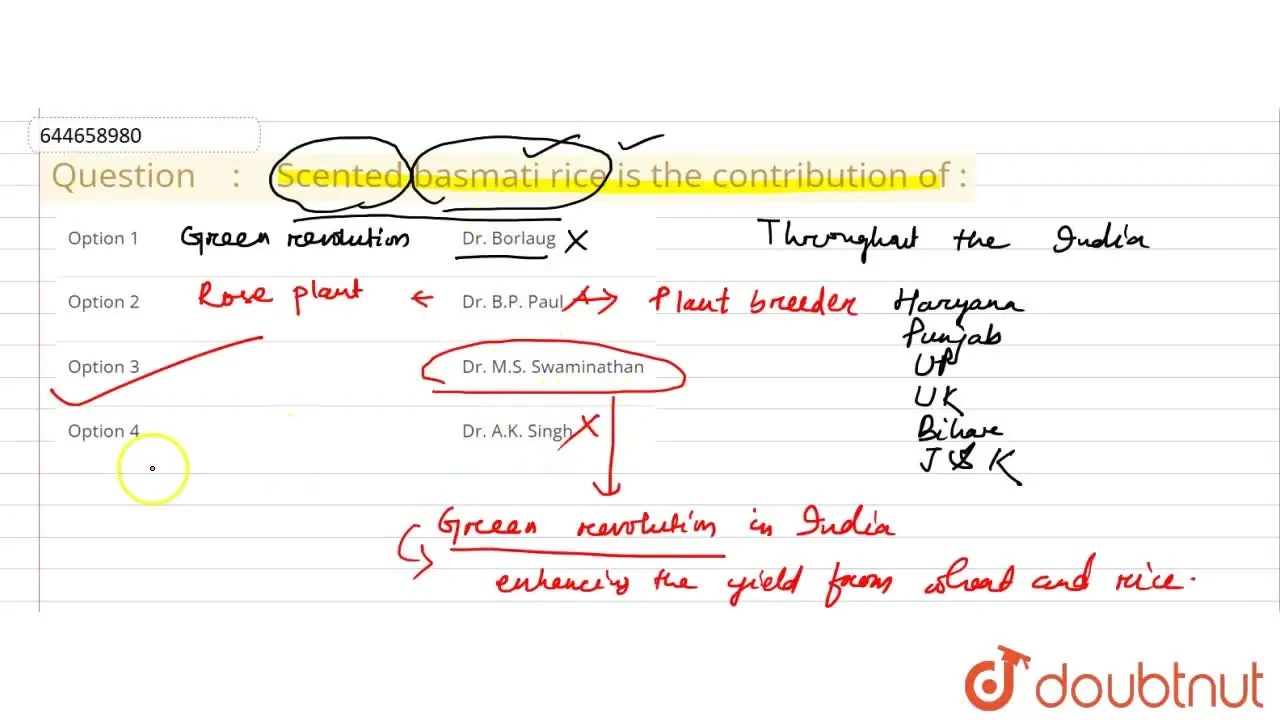 644658980
Question : Scented basmati rice is the contribution of :
Option 1 Green revolution Dr. Borlaug X Throughout the India
Option 2 Rose plant ← Dr. B.P. Paul → Plant breeder Haryana
Punjab
UP
Option 3 Dr. M.S. Swaminathan
UK
Option 4 Dr. A.K. Singh X Bihar
J & K
Green revolution in India
enhancing the yield from wheat and rice.
doubtnut